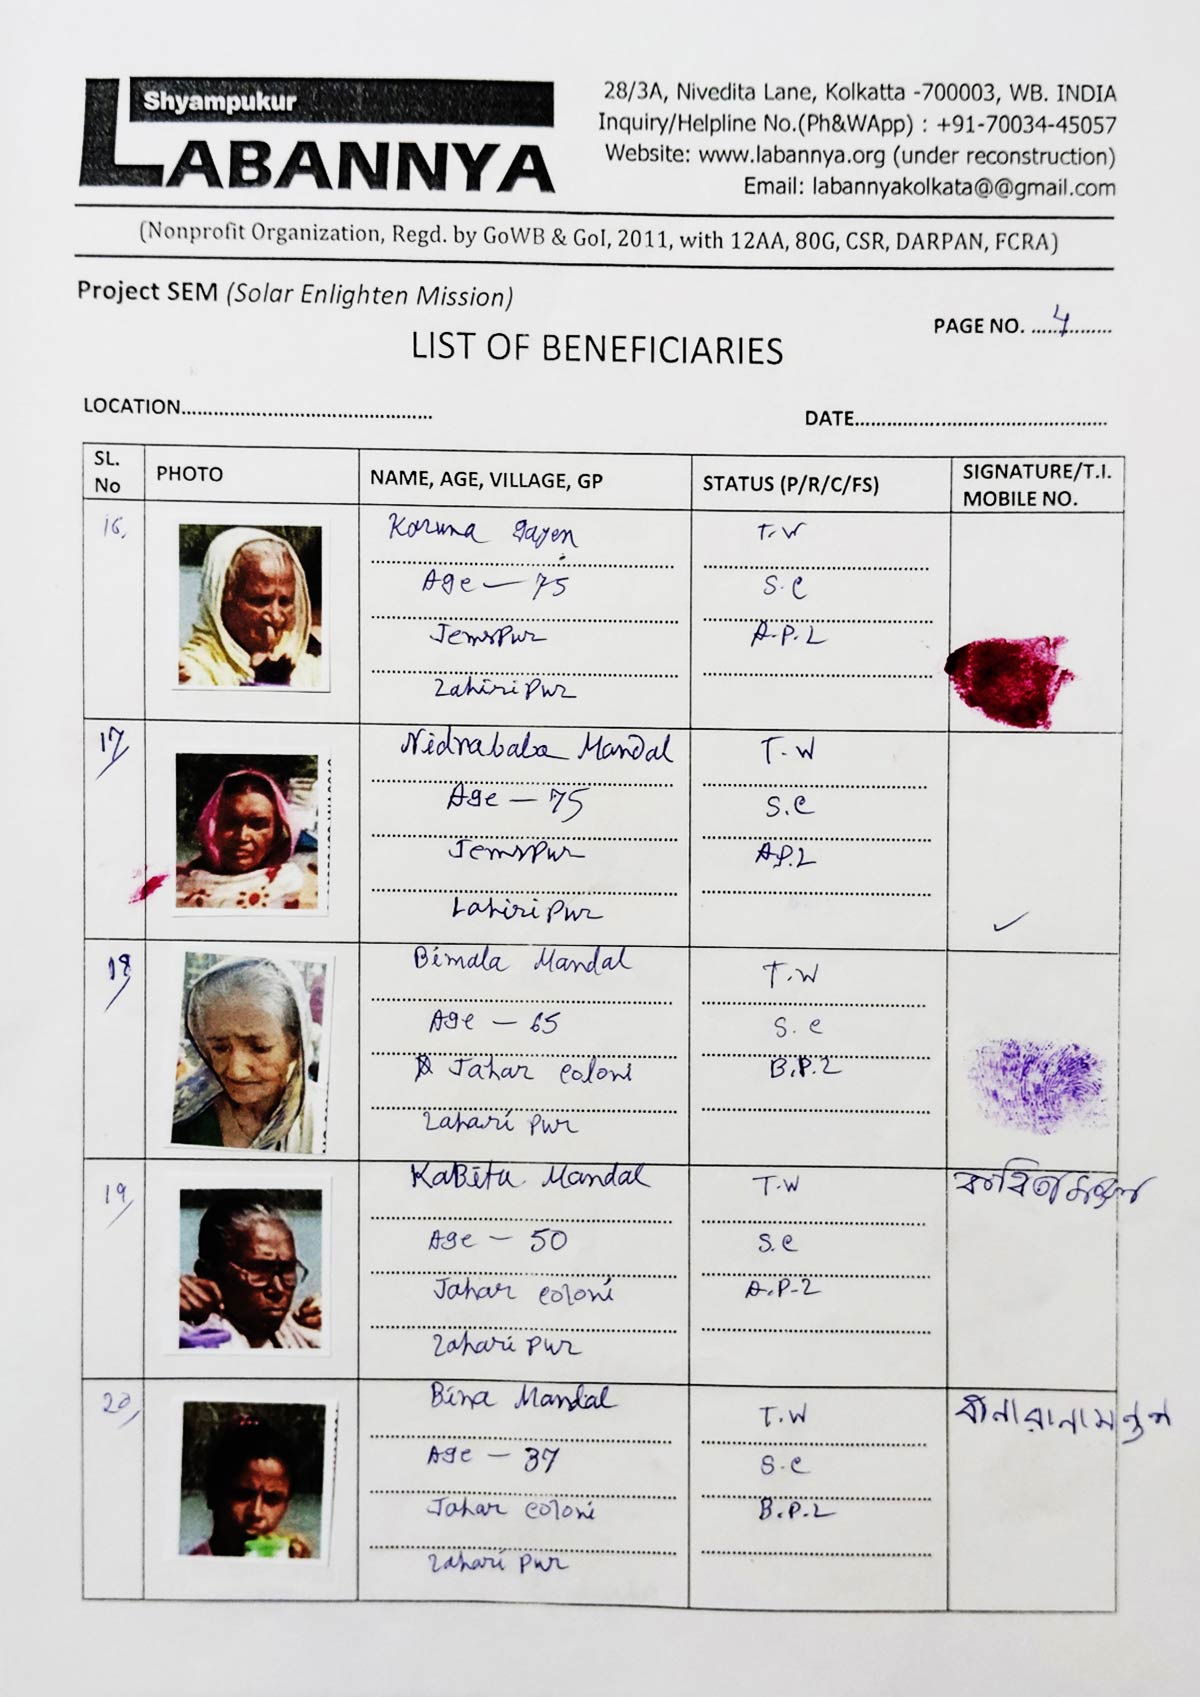 Shyampukur
LABANNYA
28/3A, Nivedita Lane, Kolkatta -700003, WB. INDIA
Inquiry/Helpline No.(Ph&WApp) : +91-70034-45057
Website: www.labannya.org (under reconstruction)
Email: labannyakolkata@@gmail.com
(Nonprofit Organization, Regd. by GoWB & GoI, 2011, with 12AA, 80G, CSR, DARPAN, FCRA)
Project SEM (Solar Enlighten Mission)
PAGE NO. .....4.........
LIST OF BENEFICIARIES
LOCATION...............................................
DATE...............................................
SL. No PHOTO NAME, AGE, VILLAGE, GP STATUS (P/R/C/FS) SIGNATURE/T.I. MOBILE NO.
16, Karuna Gayen T.W
Age - 75 S.C
Jemspur A.P.L
Lahiripur
17/ Nidrabala Mandal T.W
Age - 75 S.C
Jemspur A.P.L
Lahiripur
18/ Bimala Mandal T.W
Age - 65 S.C
Jahar coloni B.P.L
Lahari pur
19/ KaBita Mandal T.W কবিতা মণ্ডল
Age - 50 S.C
Jahar coloni A.P.L
Lahari pur
20, Bina Mandal T.W
Age - 37 S.C
Jahar coloni B.P.L
Lahari pur